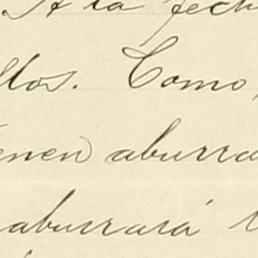 . A la fech
llos. Como,
enen aburra
aburrará